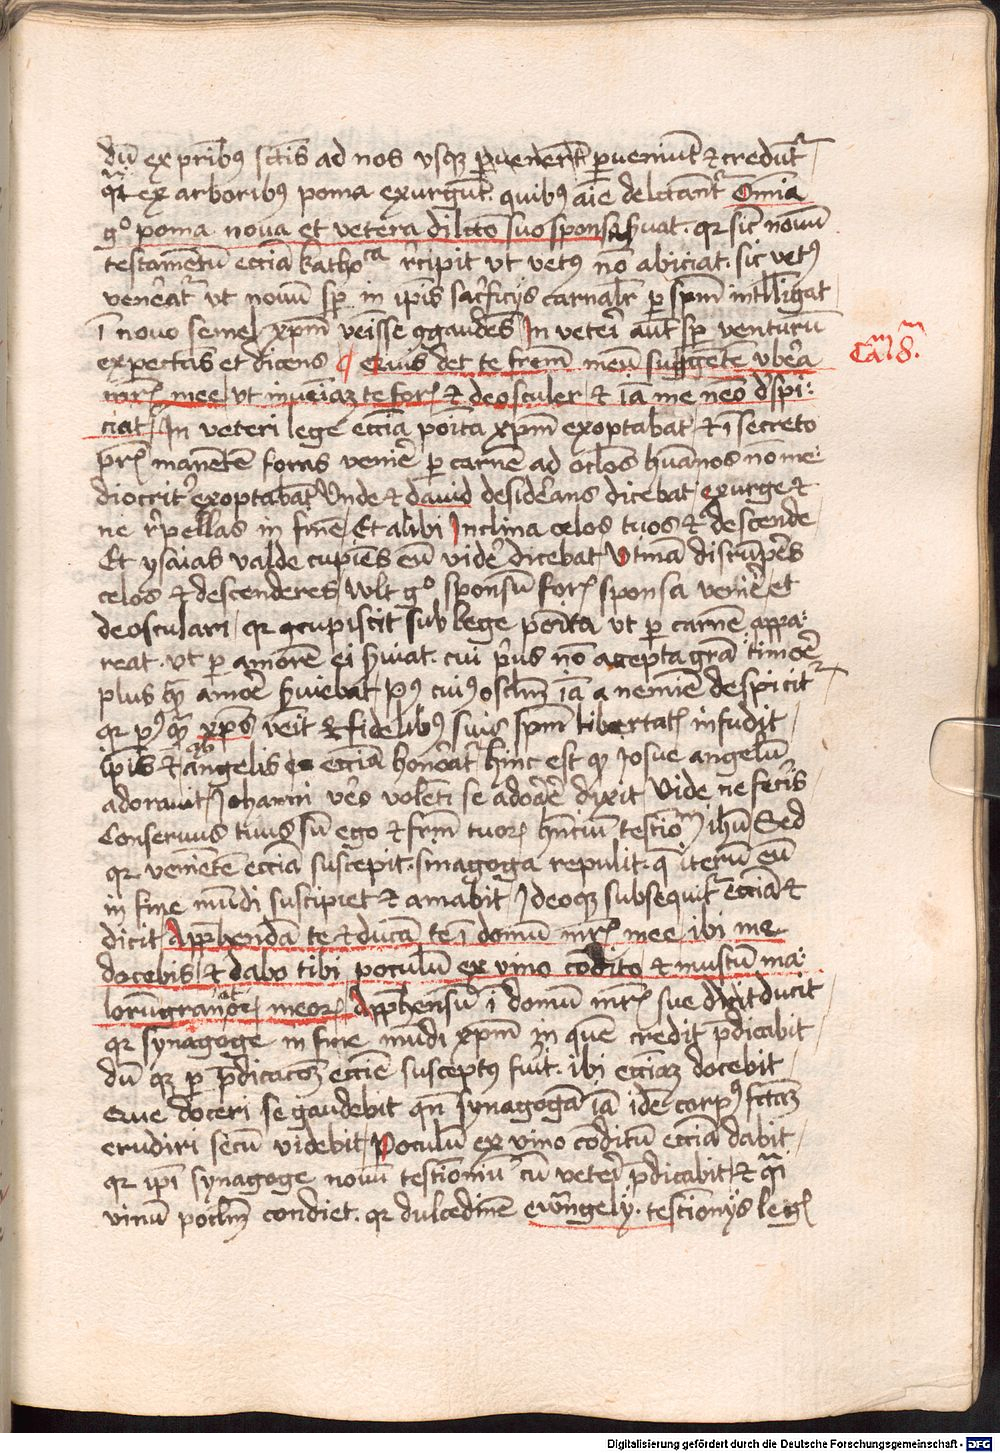 dū ex pr̄ibꝯ sctīs ad nos vsqꝫ ꝑuenerūt ꝑueniūt ⁊ credūt᷑
q̄i ex arboribꝯ poma exurgūt. quibꝯ aīe delctant᷑ Om̄ia
gº poma noua et vetera dilcto suo sponsa ẜuat. qꝛ sic̄ nouū
testamētū ecc̄ia kathoᶜᵃ rͨcipit vt vetꝯ nō abiciat. sic vetꝯ
venēat᷑ vt nouū sꝑ in ip̄is sacͥficijs carnalr̄ ꝑ sp̄m intlligat
ī nouo semel xp̄m venisse ꝯgaudēs In veteri aut̄ sꝑ venturū
expectās et dicens Quis det te frēm meū suggētē vbēa
mr̄is mee vt inueniaꝫ te forꝭ ⁊ deosculer ⁊ iā me nēo dspi:
ciat In veteri lege ecc̄ia poīta xp̄m exoptabat ⁊ ī secreto
pr̄is manētē foras venīē ꝑ carnē ad oclos hūanos nō me:
diocrit᷑ exoptabat Vnde ⁊ dauid desidērans dicebat exurge ⁊
ne rͨpellas in fine Et alibi Inclina celos tuos ⁊ descende
Et ysaias valde cupiēs eū vidē dicebat Vtinā disrūpēs
celos ⁊ descenderes Wlt gº sponsū forꝭ sponsa venīē et
deosculari qꝛ ꝯcupiscit sub lege poīta vt ꝑ carnē appa:
reat. vt ꝑ amorē ei ẜuiat. cui pͥus nō accepta gr̄a timoē
plus qͣꝫ amoē ẜuiebat Pꝯ cuiꝯ osclm̄ iā a nemīe despicit᷑
qꝛ pꝯ qͣꝫ xp̄s veīt ⁊ fidelibꝯ suis sp̄m libertatꝭ infudit
ip̄is ⁊ ab angelis ecc̄ia honōat᷑ hinc est qꝫ iosue angelū
adorauit Iohanni vēo volēti se adoāē dixit Vide ne fecīs
Conseruus tuus sū ego ⁊ fr̄m tuoꝝ hn̄ciū testioᵐ ihū Sed
qꝛ venīētē ecc̄ia suscepit. sinagoga repulit. q̄ iterū eū
in fine mūdi suscipiet ⁊ amabit Ideoqꝫ subsequit᷑ ecc̄ia ⁊
dicit App̄hendā te ⁊ ducā te ī domū mr̄is mee ibi me
docebis ⁊ dabo tibi poculū ex vino cōdito ⁊ mustū ma:
lorūgranatoꝝ meoꝝ App̄hensū ī domū mr̄is sue dicit ducit
qꝛ synagoge in fine mūdi xp̄m in quē credit p̄dicabit
dū qꝫ ꝑ p̄dicacōꝫ ecc̄ie susceptꝯ fūit. ibi ecc̄iaꝫ docebit
Que doceri se gaudebit qn̄ synagogā iā idē corpꝯ fctāꝫ
erudiri secū videbit Poculū ex vino cōditū ecc̄ia dabit
qꝛ ip̄i synagoge nouū testioniū cū veteri p̄dicabit ⁊ q̄i
vinū poclm̄ condiet. qꝛ dulcedinē ewāngelij. testionijs legꝭ
Caᵐ 8ᵐ.
Digitalisierung gefördert durch die Deutsche Forschungsgemeinschaft - DFG